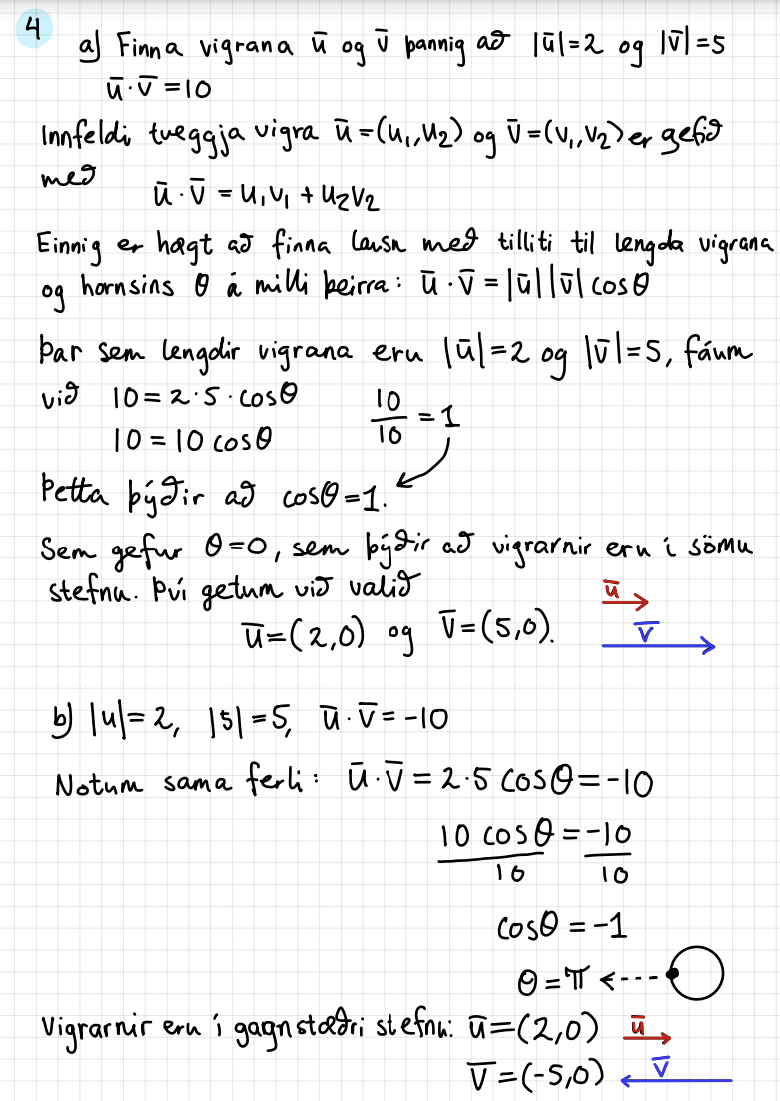 4
a) Finna vigrana ū og v̄ þannig að |ū|=2 og |v̄|=5
ū·v̄=10
Innfeldi tveggja vigra ū=(u₁,u₂) og v̄=(v₁,v₂) er gefið
með
ū·v̄ = u₁v₁ + u₂v₂
Einnig er hægt að finna lausn með tilliti til lengda vigrana
og hornsins θ á milli þeirra: ū·v̄ = |ū||v̄| cosθ
Þar sem lengdir vigrana eru |ū|=2 og |v̄|=5, fáum
við 10=2·5·cosθ 10/10 = 1
10 = 10 cosθ
Þetta þýðir að cosθ=1.
Sem gefur θ=0, sem þýðir að vigrarnir eru í sömu
stefnu. Því getum við valið ū
ū=(2,0) og v̄=(5,0). v̄
b) |u|=2, |5|=5, ū·v̄=-10
Notum sama ferli: ū·v̄ = 2·5 cosθ=-10
10 cosθ/10 = -10/10
cosθ = -1
θ = π
Vigrarnir eru í gagnstæðri stefnu: ū=(2,0) ū
v̄=(-5,0) v̄